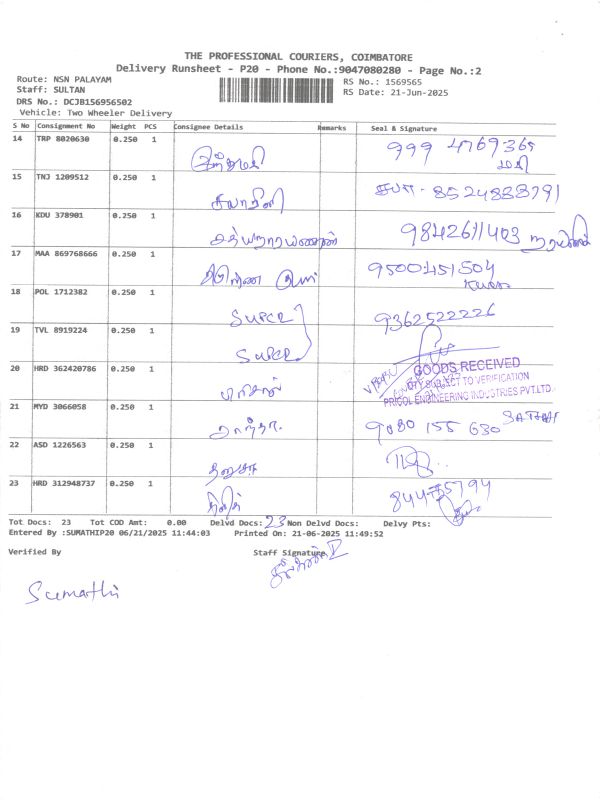 THE PROFESSIONAL COURIERS, COIMBATORE
Delivery Runsheet - P20 - Phone No.:9047080280 - Page No.:2
Route: NSN PALAYAM RS No.: 1569565
Staff: SULTAN RS Date: 21-Jun-2025
DRS No.: DCJB156956502
Vehicle: Two Wheeler Delivery
S No Consignment No Weight PCS Consignee Details Remarks Seal & Signature
14 TRP 8020630 0.250 1 999 4769365
15 TNJ 1209512 0.250 1 8524888791
16 KDU 378901 0.250 1 சத்யநாராயணன் 9842611403
17 MAA 869768666 0.250 1 9500451504
18 POL 1712382 0.250 1 SUPER 9362522226
19 TVL 8919224 0.250 1 SUPER
GOODS RECEIVED
QTY SUBJECT TO VERIFICATION
PRICOL ENGINEERING INDUSTRIES PVT.LTD.
20 HRD 362420786 0.250 1
21 MYD 3066058 0.250 1 9080 155 630
22 ASD 1226563 0.250 1
23 HRD 312948737 0.250 1
Tot Docs: 23 Tot COD Amt: 0.00 Delvd Docs: 23 Non Delvd Docs: Delvy Pts:
Entered By :SUMATHIP20 06/21/2025 11:44:03 Printed On: 21-06-2025 11:49:52
Verified By Staff Signature
Sumathi